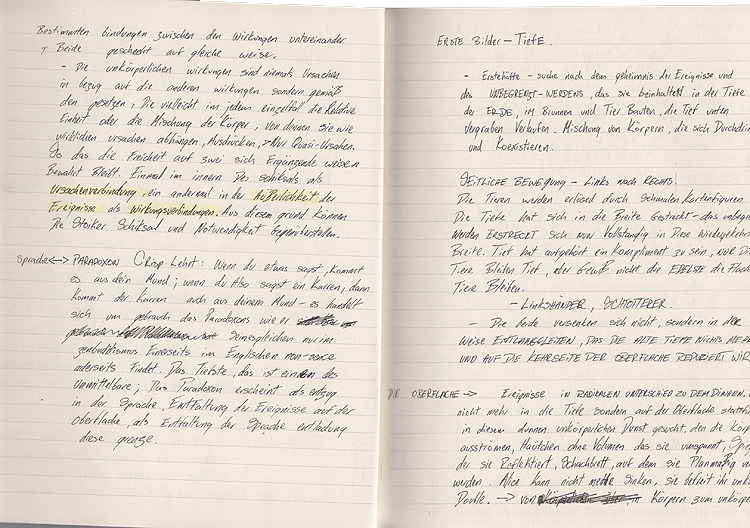 Bestimmten bindungen zwischen den Wirkungen untereinander
Beide geschecht auf gleiche weise.
- Die unkörperlichen wirkungen sind niemals Ursachen
in bezug auf die anderen wirkungen sondern gemäß
den gesetzen, Die vielleicht im jedem einzelfall die Relative
Einheit oder die Mischung der Körper, von denen sie wie
wirklichen ursachen abhängen, Ausdrücken, >Nur Quasi-Ursahen.
So das die Freiheit auf zwei sich Ergänzende weisen
Bewahrt Bleibt. Einmal im innern Des schiksals als
Ursachenverbindung, ein andermal in der Äußerlichkeit der
Ereignisse als Wirkungsverbindungen. Aus diesem grund können
Die Stoiker Schiksal und Notwendigkeit Gegenüberstellen.
Sprache <-> PARADOXON Crisp Lehrt: Wenn du etwas sagst, kommet
es aus dein Mund; wenn du Also sagst ein Karren, dann
kommt der Karren auch aus deinem Mund - es handelt
sich um gebrauch das Paradoxons wie er
seinesgleichen nur im
zenbuddismus Einerseits im Englischen non-sence
aderseits findet. Das Tiefste, das ist
Unmittelbare; Das Paradoxon erscheint als entzug
in der Sprache, Entfaltung der Ereignisse auf der
Oberflache, als Entfaltung der Sprache entladung
diese grenze.
ERSTE Bilder - TIEFE.
- Erstehätte - suche nach dem geheimnis der Ereignisse und
des UNBEGRENZT-WERDENS, das sie beinhaltet in der Tiefe
der ERDE, im Brunnen und Tier Bauten, die Tief unten
vergraben Verlaufen. Mischung von Körpern, die sich Durchdri
und Koexistieren.
SEITLICHE BEWEGUNG - Links nach RECHTS.
Die Tieren werden erlöst durch Schmalen, Kartenfiguren
Die Tiefe hat sich in die Breite Gestrackt - das unbegre
werden ERSTRECKT sich nun Vollständig in Diese Wiedergekehr
Breite. Tief hat aufgehört ein Kompliment zu sein, nur Di
Tiere Bleiben Tief, aber Gewiß nicht die EDELSTE die Flach
Tiere Bleiben.
- LINKSHÄNDER, SCHTOTTERER.
- Die beide versenken sich nicht, sondern in der
weise ENTLANGGLEITEN, DAS DIE ALTE TIEFE NICHTS MEHR
UND AUF DIE KEHRSEITE DER OBERFLACHE REDUZIERT WIR
DIE OBERFLACHE -> Ereignisse in RADIKALEN UNTERSCHIED ZU DEM DINGEN.
nicht mehr in die Tiefe sondern auf der Oberflache stattfi
in diesem dunnen unkörperlichen Dunst gesucht, den die Körp
ausströmen, Häutchen ohne Volumen das sie umspannt, Spieg
der sie Reflektiert, Schachbrett, auf dem sie Planmäßig ve
werden. Alice kann nicht mehr sinken, sie befreit ihr unkö
Double. -> von Körpern zum unkörpe